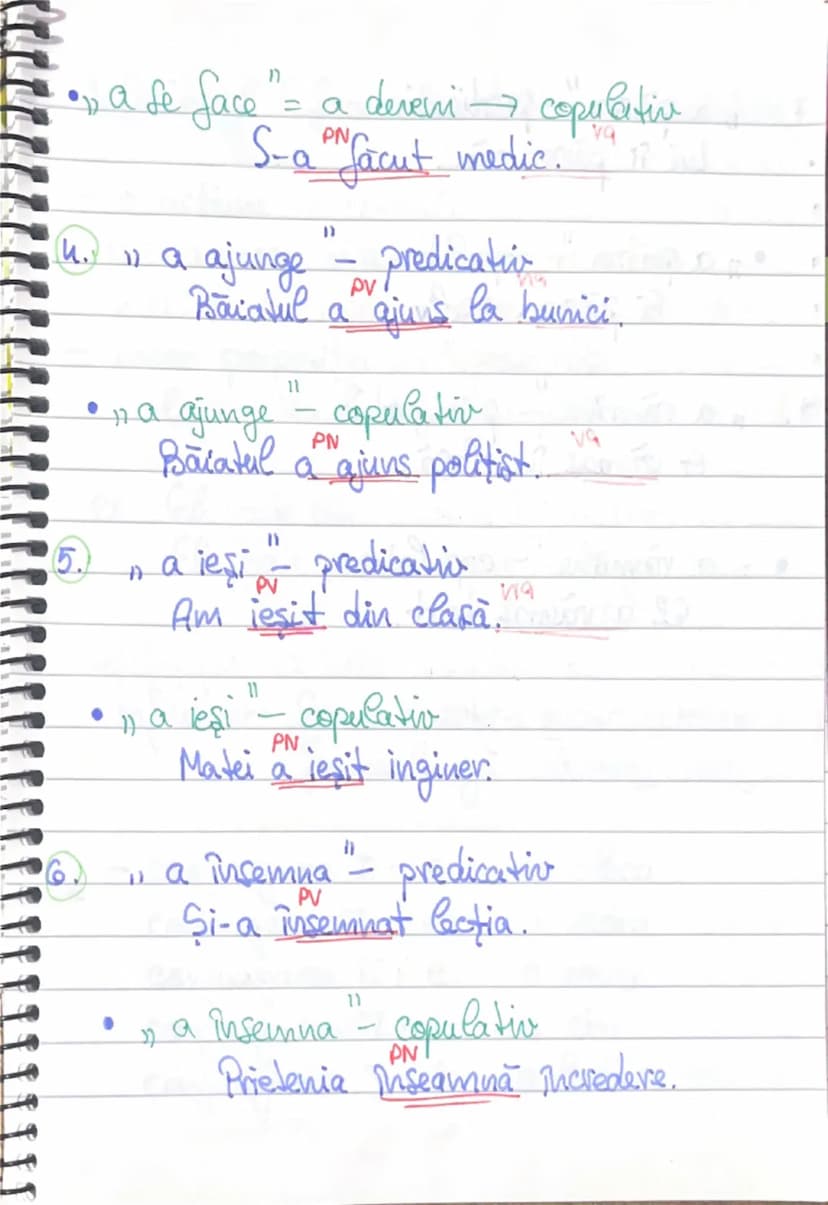 • „a se face" = a deveni → copulativ
PN
S-a făcut medic.
4. „a ajunge" - predicativ
PV
Băiatul a ajuns la bunici.
• „a ajunge" - copulativ
PN
Băiatul a ajuns polițist.
5. „a ieși" - predicativ
PV
Am ieșit din clasă.
• „a ieși" - copulativ
PN
Matei a ieșit inginer.
6. „a însemna" - predicativ
PV
Și-a însemnat lecția.
• „a însemna" - copulativ
PN
Prietenia înseamnă încredere.